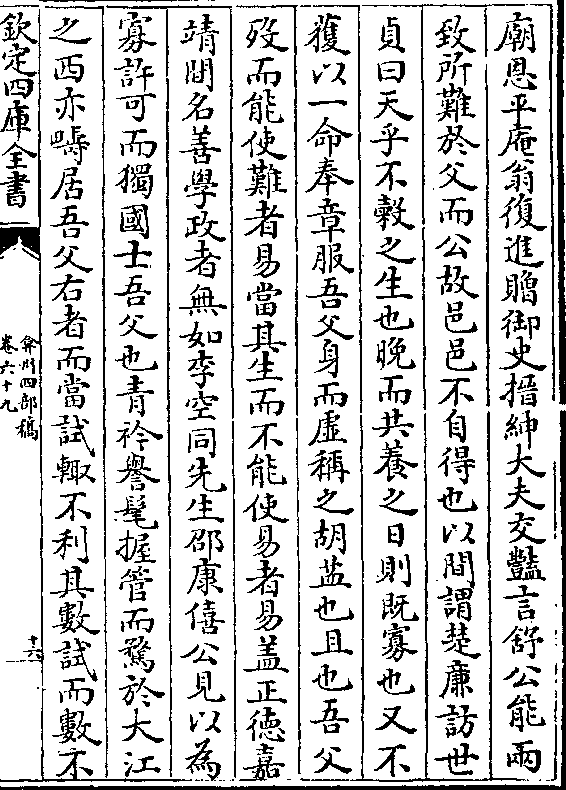 廟恩平庵翁復進贈御史搢紳大夫交豔言舒公能兩
致所難於父而公故邑邑不自得也以間謂楚亷訪世
貞曰天乎不穀之生也晚而共養之日則既寡也又不
獲以一命奉章服吾父身而虛稱之胡葢也且也吾父
歿而能使難者易當其生而不能使易者易盖正徳嘉
靖間名善學政者無如李空同先生邵康僖公見以為
寡許可而獨國士吾父也青衿譽髦握管而騖於大江
之西亦疇居吾父右者而當試輙不利其數試而數不
欽定四庫全書
弇州四部稿
卷六十九
十六